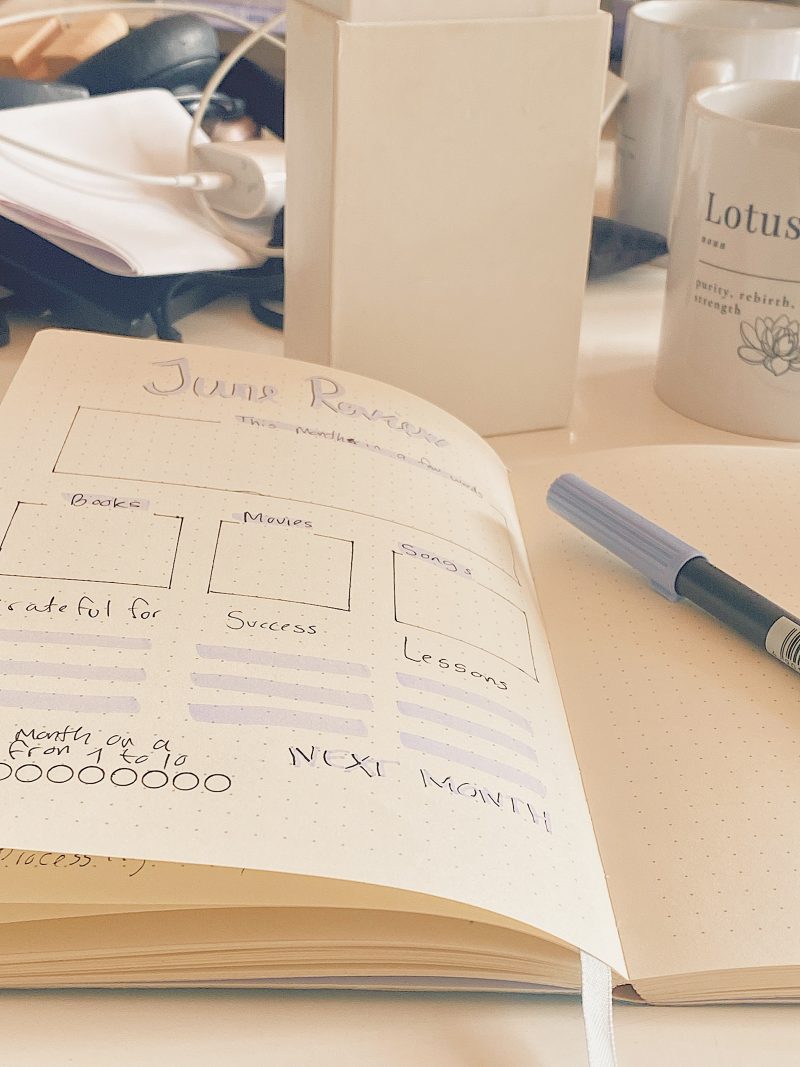 Lotus
noun
purity, rebirth,
strength
June Review
This Months in a few words
Books
Movies
Songs
rateful for
Success
Lessons
Month on a
from 1 to 10
NEXT MONTH